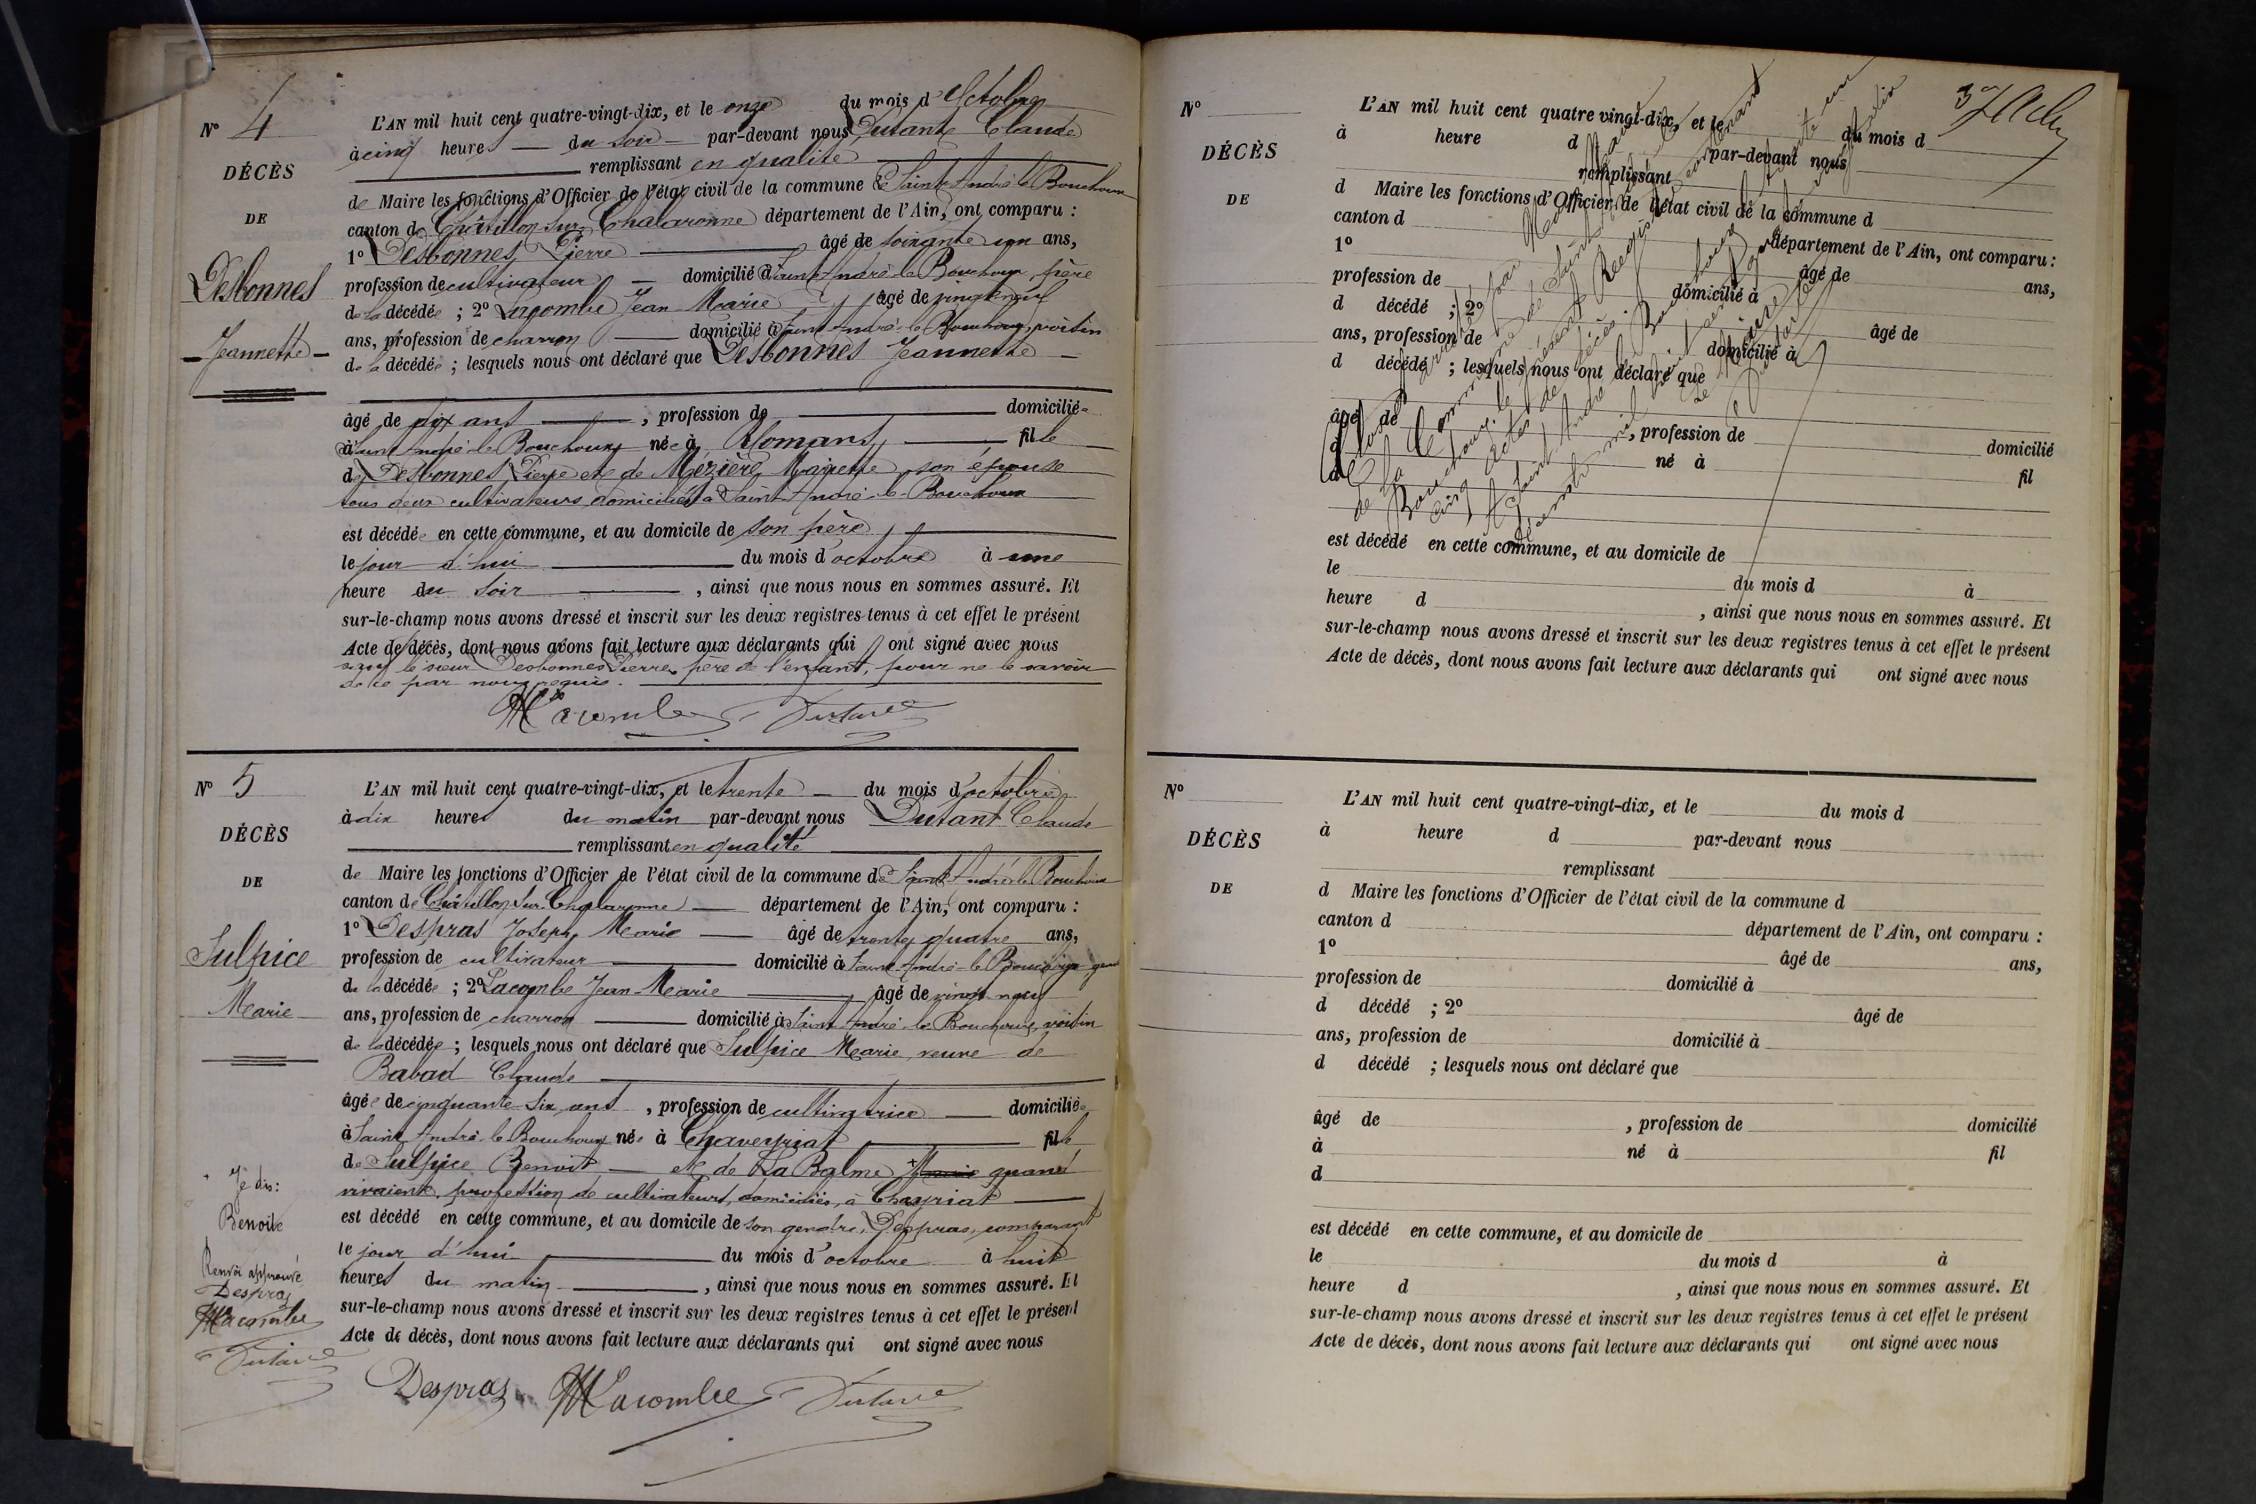 Nº 4
DÉCÈS
DE
Desbonnes
Jeannette
L'AN mil huit cent quatre-vingt-dix, et le onze du mois d'Octobre
à cinq heures du soir par-devant nous Dutant Claude
remplissant en qualité
de Maire les fonctions d'Officier de l'état civil de la commune de Saint-André-le-Bouchoux
canton de Châtillon-sur-Chalaronne département de l'Ain, ont comparu :
1º Desbonnes Pierre âgé de soixante un ans,
profession de cultivateur domicilié à Saint-André-le-Bouchoux, père
de la décédée ; 2º Lacombe Jean Marie âgé de vingt neuf
ans, profession de charron domicilié à Saint-André-le-Bouchoux, voisin
de la décédée ; lesquels nous ont déclaré que Desbonnes Jeannette
âgé de dix ans , profession de domiciliée
à Saint-André-le-Bouchoux née à Romans fille
de Desbonnes Pierre et de Mézière Mariette son épouse
tous deux cultivateurs domiciliés à Saint-André-le-Bouchoux
est décédée en cette commune, et au domicile de son père
le jour d'hui du mois d'octobre à une
heure du soir , ainsi que nous nous en sommes assuré. Et
sur-le-champ nous avons dressé et inscrit sur les deux registres tenus à cet effet le présent
Acte de décès, dont nous avons fait lecture aux déclarants qui ont signé avec nous
sauf le sieur Desbonnes Pierre, père de l'enfant, pour ne le savoir
de ce par nous requis.
Lacombe Dutant
Nº 5
DÉCÈS
DE
Sulpice
Marie
L'AN mil huit cent quatre-vingt-dix, et le trente du mois d'octobre
à dix heures du matin par-devant nous Dutant Claude
remplissant en qualité
de Maire les fonctions d'Officier de l'état civil de la commune de Saint-André-le-Bouchoux
canton de Châtillon-sur-Chalaronne département de l'Ain, ont comparu :
1º Despras Joseph Marie âgé de trente quatre ans,
profession de cultivateur domicilié à Saint-André-le-Bouchoux
de la décédée ; 2º Lacombe Jean-Marie âgé de vingt neuf
ans, profession de charron domicilié à Saint-André-le-Bouchoux, voisin
de la décédée ; lesquels nous ont déclaré que Sulpice Marie, veuve de
Babad Claude
âgée de cinquante-six ans , profession de cultivatrice domiciliée
à Saint-André-le-Bouchoux née à Chaveyriat fille
de Sulpice Benoit et de La Balme + Marie quand
vivaient, profession de cultivateurs, domiciliés, à Chayriat
est décédé en cette commune, et au domicile de son gendre, Despras, comparant
le jour d'hui du mois d'octobre à huit
heures du matin , ainsi que nous nous en sommes assuré. Et
sur-le-champ nous avons dressé et inscrit sur les deux registres tenus à cet effet le présent
Acte de décès, dont nous avons fait lecture aux déclarants qui ont signé avec nous
Je dis :
Benoite
Renvoi approuvé
Despras
Lacombe
Dutant
Despras Lacombe Dutant
Nº
DÉCÈS
DE
L'AN mil huit cent quatre vingt-dix, et le du mois d
à heure d par-devant nous
remplissant
d Maire les fonctions d'Officier de l'état civil de la commune d
canton d département de l'Ain, ont comparu :
1º âgé de ans,
profession de domicilié à
d décédé ; 2º âgé de
ans, profession de domicilié à
d décédé ; lesquels nous ont déclaré que
âgé de , profession de domicilié
à né à fil
d
est décédé en cette commune, et au domicile de
le du mois d à
heure d , ainsi que nous nous en sommes assuré. Et
sur-le-champ nous avons dressé et inscrit sur les deux registres tenus à cet effet le présent
Acte de décès, dont nous avons fait lecture aux déclarants qui ont signé avec nous
Nº
DÉCÈS
DE
L'AN mil huit cent quatre-vingt-dix, et le du mois d
à heure d par-devant nous
remplissant
d Maire les fonctions d'Officier de l'état civil de la commune d
canton d département de l'Ain, ont comparu :
1º âgé de ans,
profession de domicilié à
d décédé ; 2º âgé de
ans, profession de domicilié à
d décédé ; lesquels nous ont déclaré que
âgé de , profession de domicilié
à né à fil
d
est décédé en cette commune, et au domicile de
le du mois d à
heure d , ainsi que nous nous en sommes assuré. Et
sur-le-champ nous avons dressé et inscrit sur les deux registres tenus à cet effet le présent
Acte de décès, dont nous avons fait lecture aux déclarants qui ont signé avec nous